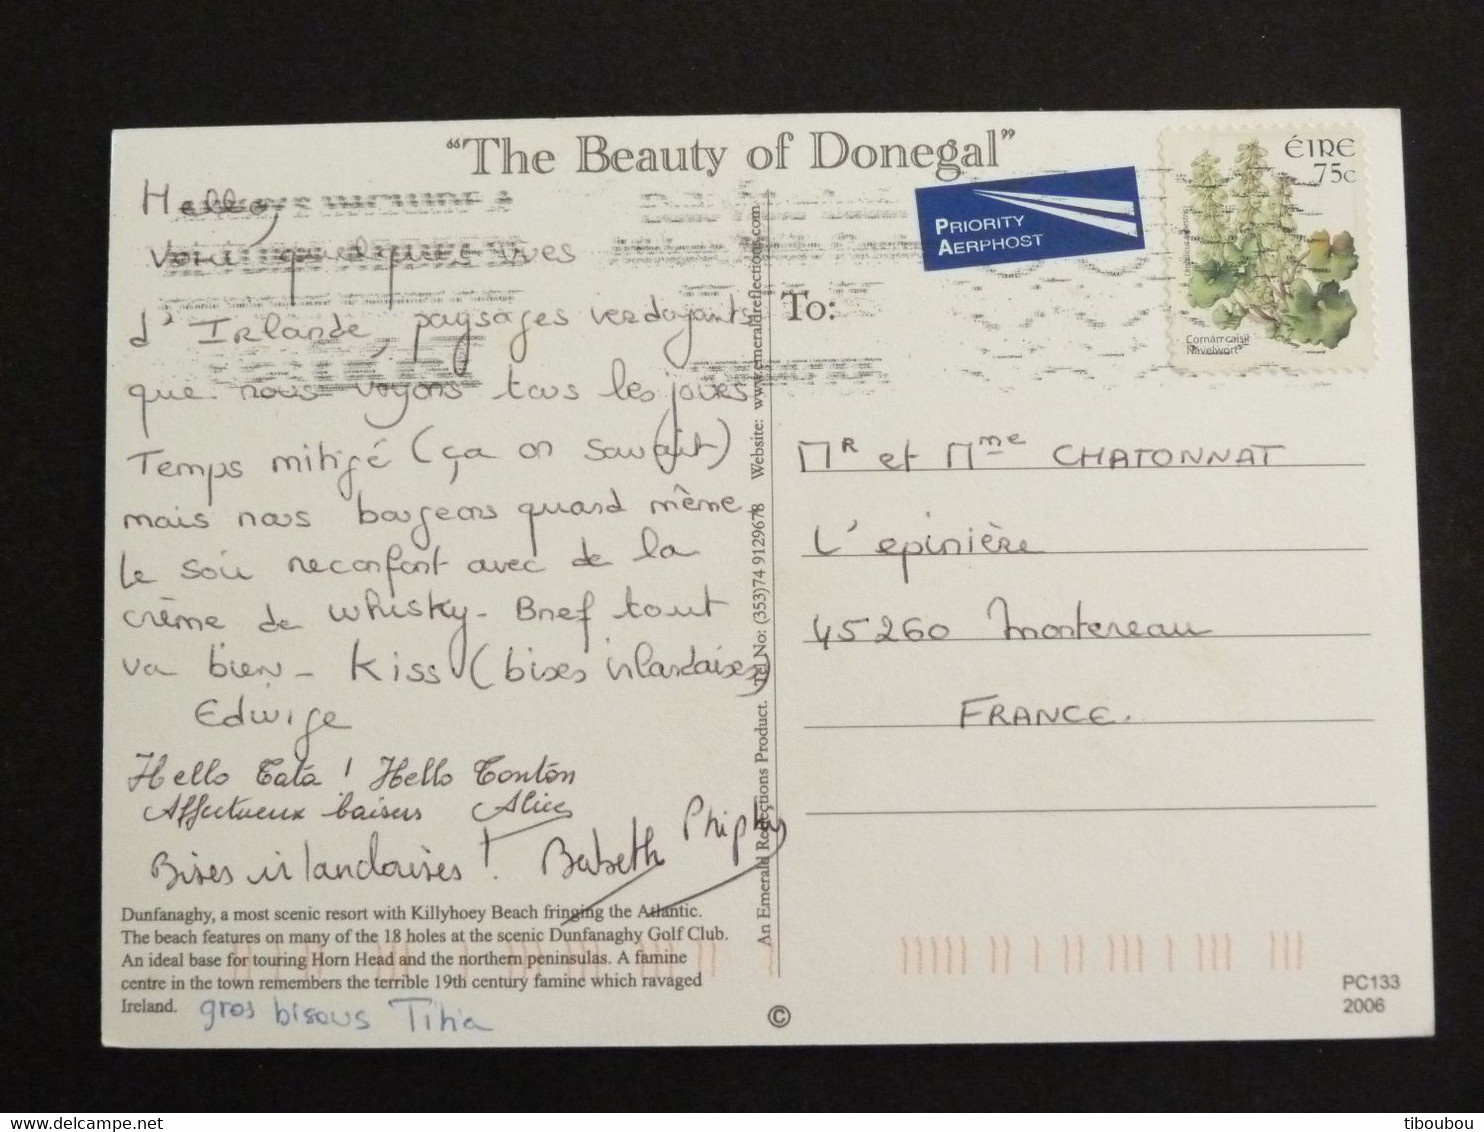 "The Beauty of Donegal"
Hello,
Voici quelques vues
d'Irlande, paysages verdoyants
que nous voyons tous les jours.
Temps mitigé (ça on savait)
mais nous bougeons quand même.
Le soir reconfort avec de la
crème de whisky - Bref tout
va bien - Kiss (bises irlandaises)
Edwige
Hello Tata ! Hello Tonton
Affectueux baisers Alice
Bises irlandaises ! Babeth
Dunfanaghy, a most scenic resort with Killyhoey Beach fringing the Atlantic.
The beach features on many of the 18 holes at the scenic Dunfanaghy Golf Club.
An ideal base for touring Horn Head and the northern peninsulas. A famine
centre in the town remembers the terrible 19th century famine which ravaged
Ireland.
gros bisous Titia
An Emerald Reflections Product. Tel No: (353)74 9129678 Website: www.emeraldreflections.com
©
PRIORITY
AERPHOST
ÉIRE
75c
Cornán caisil
Navelwort
To:
Mr et Mme CHATONNAT
L'epinière
45260 Montereau
FRANCE.
PC133
2006
tiboubou
www.delcampe.net